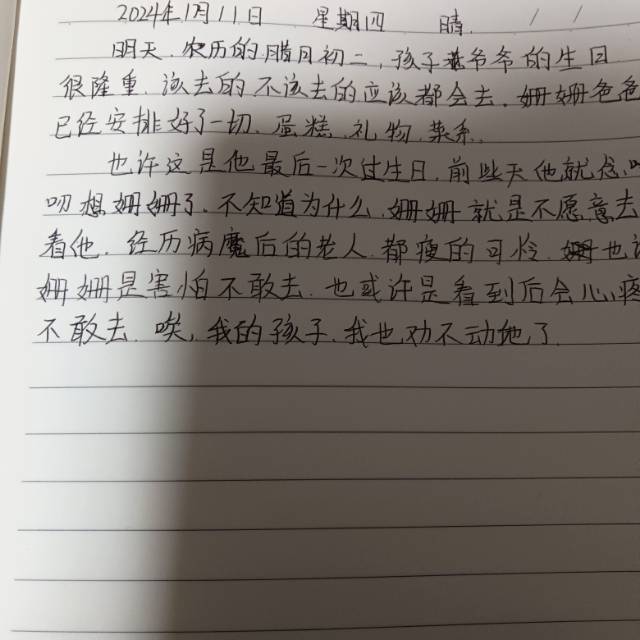 2024年1月11日 星期四 晴
明天,农历的腊月初二,孩子爷爷的生日
很隆重.该去的不该去的应该都会去.姗姗爸爸
已经安排好了一切.蛋糕.礼物.菜系.
也许这是他最后一次过生日.前些天他就念
叨想姗姗了.不知道为什么.姗姗就是不愿意去
看他.经历病魔后的老人.都瘦的可怜.也
姗姗是害怕不敢去.也或许是看到后会心疼
不敢去.唉,我的孩子.我也劝不动她了.